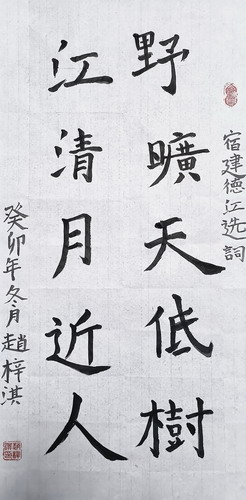 宿建德江选詞
野曠天低樹
江清月近人
癸卯年冬月趙梓淇